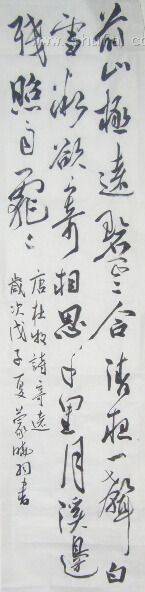 前山極遠碧雲合清夜一聲白
雪微欲寄相思千里月溪邊
殘照雨霏〻
唐杜牧詩寄遠
歲次戊子夏蒙書